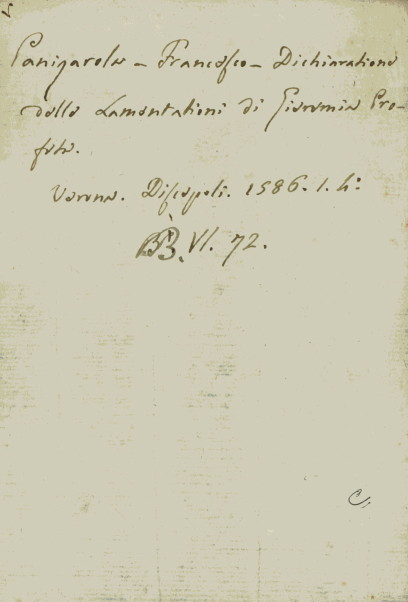 Panigarola - Francesco - Dichiaratione
delle Lamentationi di Gieremia Pro-
feta.
Verona. Discepoli. 1586. 1. h:
BB. VI. 72.
C.